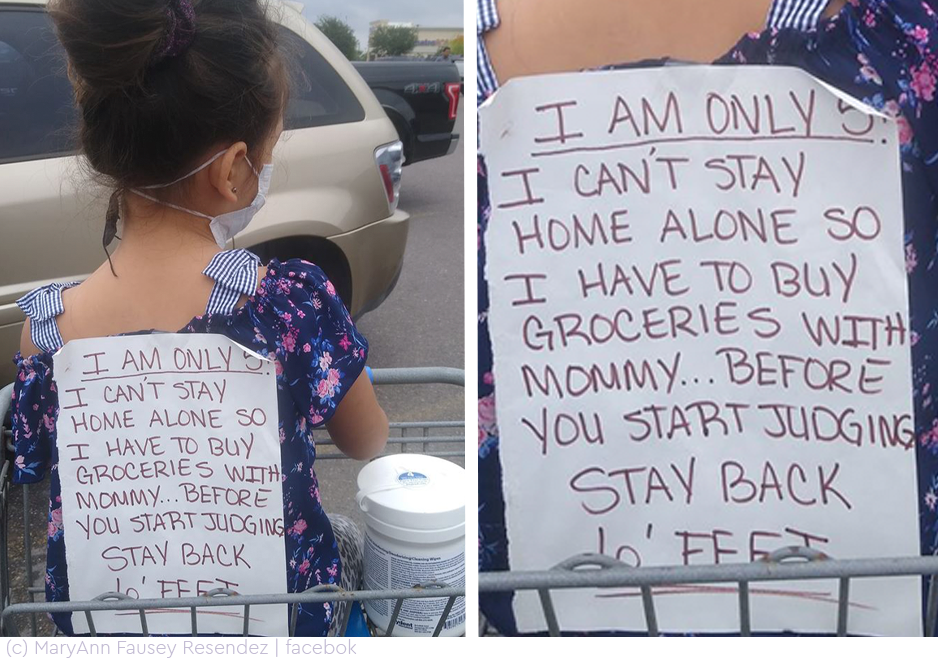 I AM ONLY 5.
I CAN'T STAY
HOME ALONE SO
I HAVE TO BUY
GROCERIES WITH
MOMMY... BEFORE
YOU START JUDGING
STAY BACK
6' FEET
I AM ONLY 5.
I CAN'T STAY
HOME ALONE SO
I HAVE TO BUY
GROCERIES WITH
MOMMY... BEFORE
YOU START JUDGING
STAY BACK
6' FEET
4X4
(c) MaryAnn Fausey Resendez | facebok